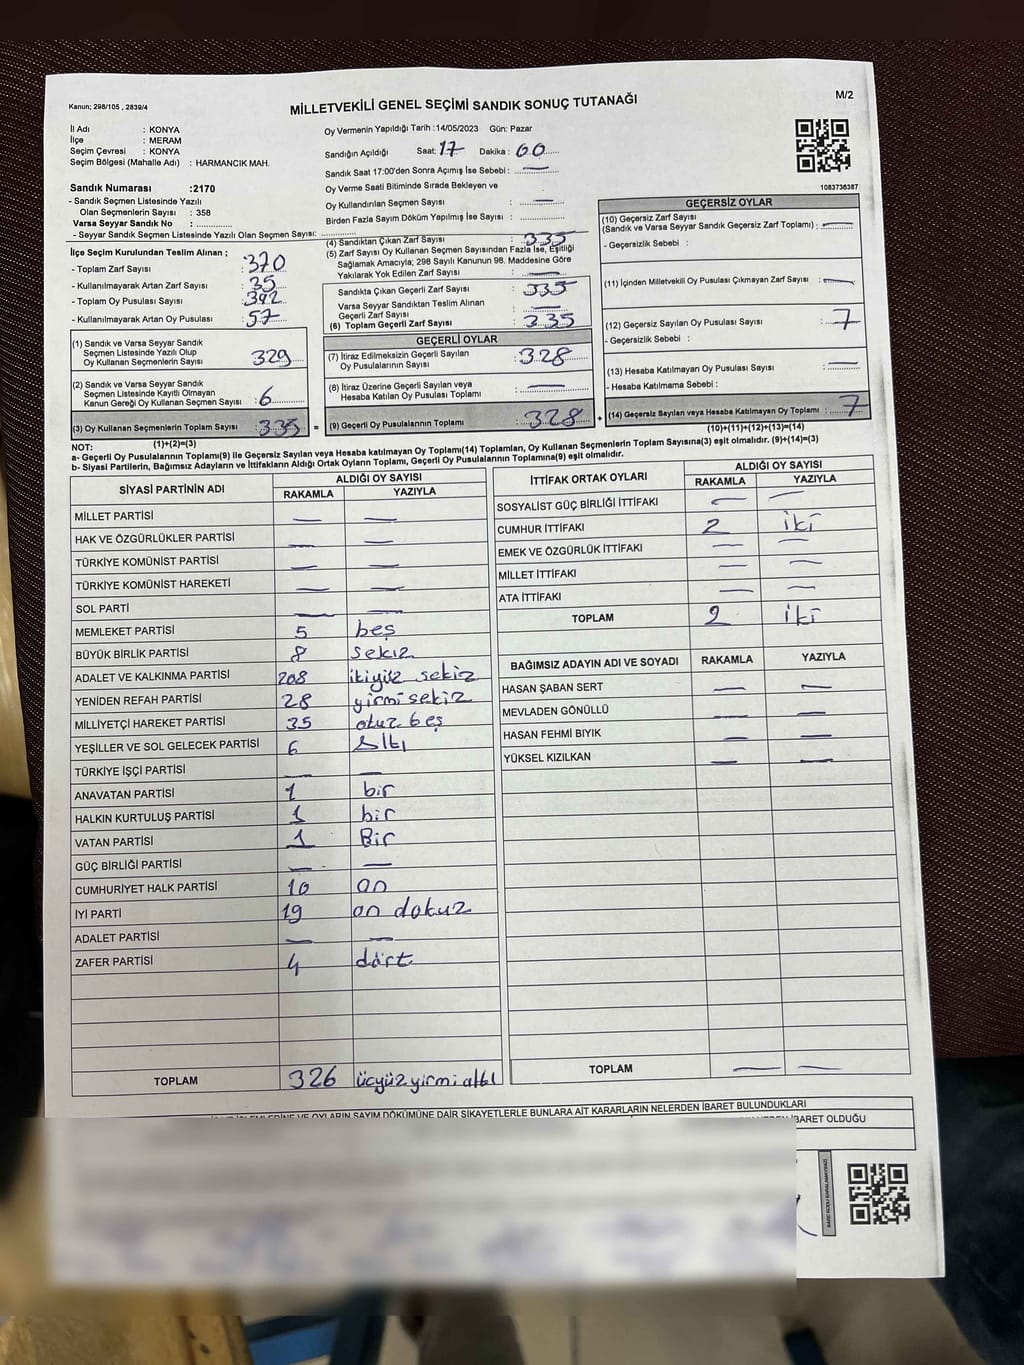 Kanun; 298/105 , 2839/4
MİLLETVEKİLİ GENEL SEÇİMİ SANDIK SONUÇ TUTANAĞI
M/2
İl Adı : KONYA
İlçe : MERAM
Seçim Çevresi : KONYA
Seçim Bölgesi (Mahalle Adı) : HARMANCIK MAH.
Oy Vermenin Yapıldığı Tarih :14/05/2023 Gün: Pazar
Sandığın Açıldığı Saat: 17 Dakika: 00
Sandık Saat 17:00'den Sonra Açımış İse Sebebi : —
Oy Verme Saati Bitiminde Sırada Bekleyen ve
Oy Kullandırılan Seçmen Sayısı : —
Birden Fazla Sayım Döküm Yapılmış İse Sayısı :
1083736387
Sandık Numarası :2170
- Sandık Seçmen Listesinde Yazılı
Olan Seçmenlerin Sayısı : 358
Varsa Seyyar Sandık No :
- Seyyar Sandık Seçmen Listesinde Yazılı Olan Seçmen Sayısı:
İlçe Seçim Kurulundan Teslim Alınan ;
- Toplam Zarf Sayısı : 370
- Kullanılmayarak Artan Zarf Sayısı : 35
- Toplam Oy Pusulası Sayısı : 392
- Kullanılmayarak Artan Oy Pusulası : 57
(1) Sandık ve Varsa Seyyar Sandık
Seçmen Listesinde Yazılı Olup
Oy Kullanan Seçmenlerin Sayısı 329
(2) Sandık ve Varsa Seyyar Sandık
Seçmen Listesinde Kayıtlı Olmayan
Kanun Gereği Oy Kullanan Seçmen Sayısı : 6
(3) Oy Kullanan Seçmenlerin Toplam Sayısı : 335 =
(1)+(2)=(3)
(4) Sandıktan Çıkan Zarf Sayısı : 335
(5) Zarf Sayısı Oy Kullanan Seçmen Sayısından Fazla İse, Eşitliği
Sağlamak Amacıyla; 298 Sayılı Kanunun 98. Maddesine Göre
Yakılarak Yok Edilen Zarf Sayısı : —
Sandıkta Çıkan Geçerli Zarf Sayısı : 335
Varsa Seyyar Sandıktan Teslim Alınan
Geçerli Zarf Sayısı : —
(6) Toplam Geçerli Zarf Sayısı : 335
GEÇERLİ OYLAR
(7) İtiraz Edilmeksizin Geçerli Sayılan
Oy Pusulalarının Sayısı : 328
(8) İtiraz Üzerine Geçerli Sayılan veya
Hesaba Katılan Oy Pusulası Toplamı : —
(9) Geçerli Oy Pusulalarının Toplamı : 328 +
GEÇERSİZ OYLAR
(10) Geçersiz Zarf Sayısı
(Sandık ve Varsa Seyyar Sandık Geçersiz Zarf Toplamı) : —
- Geçersizlik Sebebi :
(11) İçinden Milletvekili Oy Pusulası Çıkmayan Zarf Sayısı : —
(12) Geçersiz Sayılan Oy Pusulası Sayısı : 7
- Geçersizlik Sebebi :
(13) Hesaba Katılmayan Oy Pusulası Sayısı : —
- Hesaba Katılmama Sebebi :
(14) Geçersiz Sayılan veya Hesaba Katılmayan Oy Toplamı : 7
(10)+(11)+(12)+(13)=(14)
NOT:
a- Geçerli Oy Pusulalarının Toplamı(9) ile Geçersiz Sayılan veya Hesaba katılmayan Oy Toplamı(14) Toplamları, Oy Kullanan Seçmenlerin Toplam Sayısına(3) eşit olmalıdır. (9)+(14)=(3)
b- Siyasi Partilerin, Bağımsız Adayların ve İttifakların Aldığı Ortak Oyların Toplamı, Geçerli Oy Pusulalarının Toplamına(9) eşit olmalıdır.
SİYASİ PARTİNİN ADI ALDIĞI OY SAYISI
RAKAMLA YAZIYLA
MİLLET PARTİSİ — —
HAK VE ÖZGÜRLÜKLER PARTİSİ — —
TÜRKİYE KOMÜNİST PARTİSİ — —
TÜRKİYE KOMÜNİST HAREKETİ — —
SOL PARTİ — —
MEMLEKET PARTİSİ 5 beş
BÜYÜK BİRLİK PARTİSİ 8 sekiz
ADALET VE KALKINMA PARTİSİ 208 ikiyüz sekiz
YENİDEN REFAH PARTİSİ 28 yirmi sekiz
MİLLİYETÇİ HAREKET PARTİSİ 35 otuz beş
YEŞİLLER VE SOL GELECEK PARTİSİ 6 Altı
TÜRKİYE İŞÇİ PARTİSİ — —
ANAVATAN PARTİSİ 1 bir
HALKIN KURTULUŞ PARTİSİ 1 bir
VATAN PARTİSİ 1 Bir
GÜÇ BİRLİĞİ PARTİSİ — —
CUMHURİYET HALK PARTİSİ 10 on
İYİ PARTİ 19 on dokuz
ADALET PARTİSİ — —
ZAFER PARTİSİ 4 dört
TOPLAM 326 üçyüz yirmi altı
İTTİFAK ORTAK OYLARI ALDIĞI OY SAYISI
RAKAMLA YAZIYLA
SOSYALİST GÜÇ BİRLİĞİ İTTİFAKI — —
CUMHUR İTTİFAKI 2 iki
EMEK VE ÖZGÜRLÜK İTTİFAKI — —
MİLLET İTTİFAKI — —
ATA İTTİFAKI — —
TOPLAM 2 iki
BAĞIMSIZ ADAYIN ADI VE SOYADI RAKAMLA YAZIYLA
HASAN ŞABAN SERT — —
MEVLADEN GÖNÜLLÜ — —
HASAN FEHMİ BIYIK — —
YÜKSEL KIZILKAN — —
TOPLAM — —
İŞLEMLERİNE VE OYLARIN SAYIM DÖKÜMÜNE DAİR ŞİKAYETLERLE BUNLARA AİT KARARLARIN NELERDEN İBARET BULUNDUKLARI
İBARET OLDUĞU